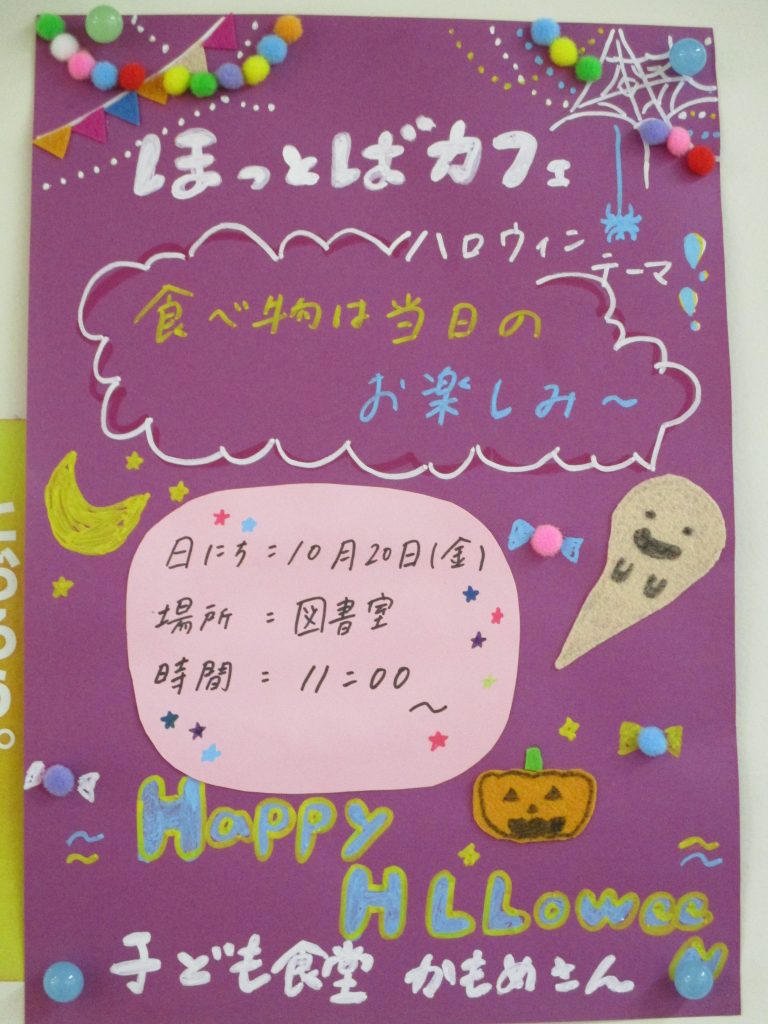 ほっとばカフェ
ハロウィン
テーマ
食べ物は当日の
お楽しみ～
日にち：10月20日(金)
場所：図書室
時間：11：00
～
Happy
HLLowee
n
子ども食堂 かもめさん